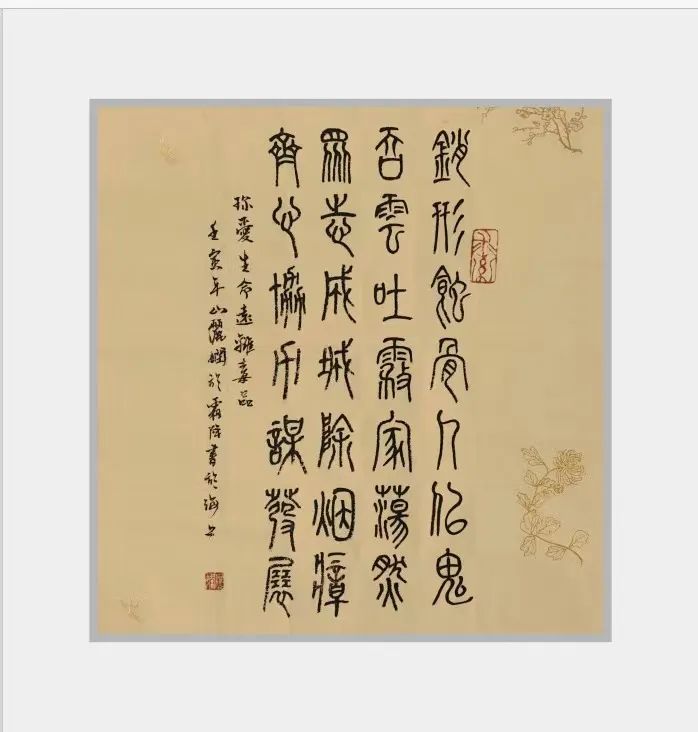 銷形蝕骨人似鬼
吞雲吐霧家蕩然
眾志成城除烟瘴
齊心協力謀發展
珍愛生命遠離毒品
壬寅年山麗嫻於霜降書於海上